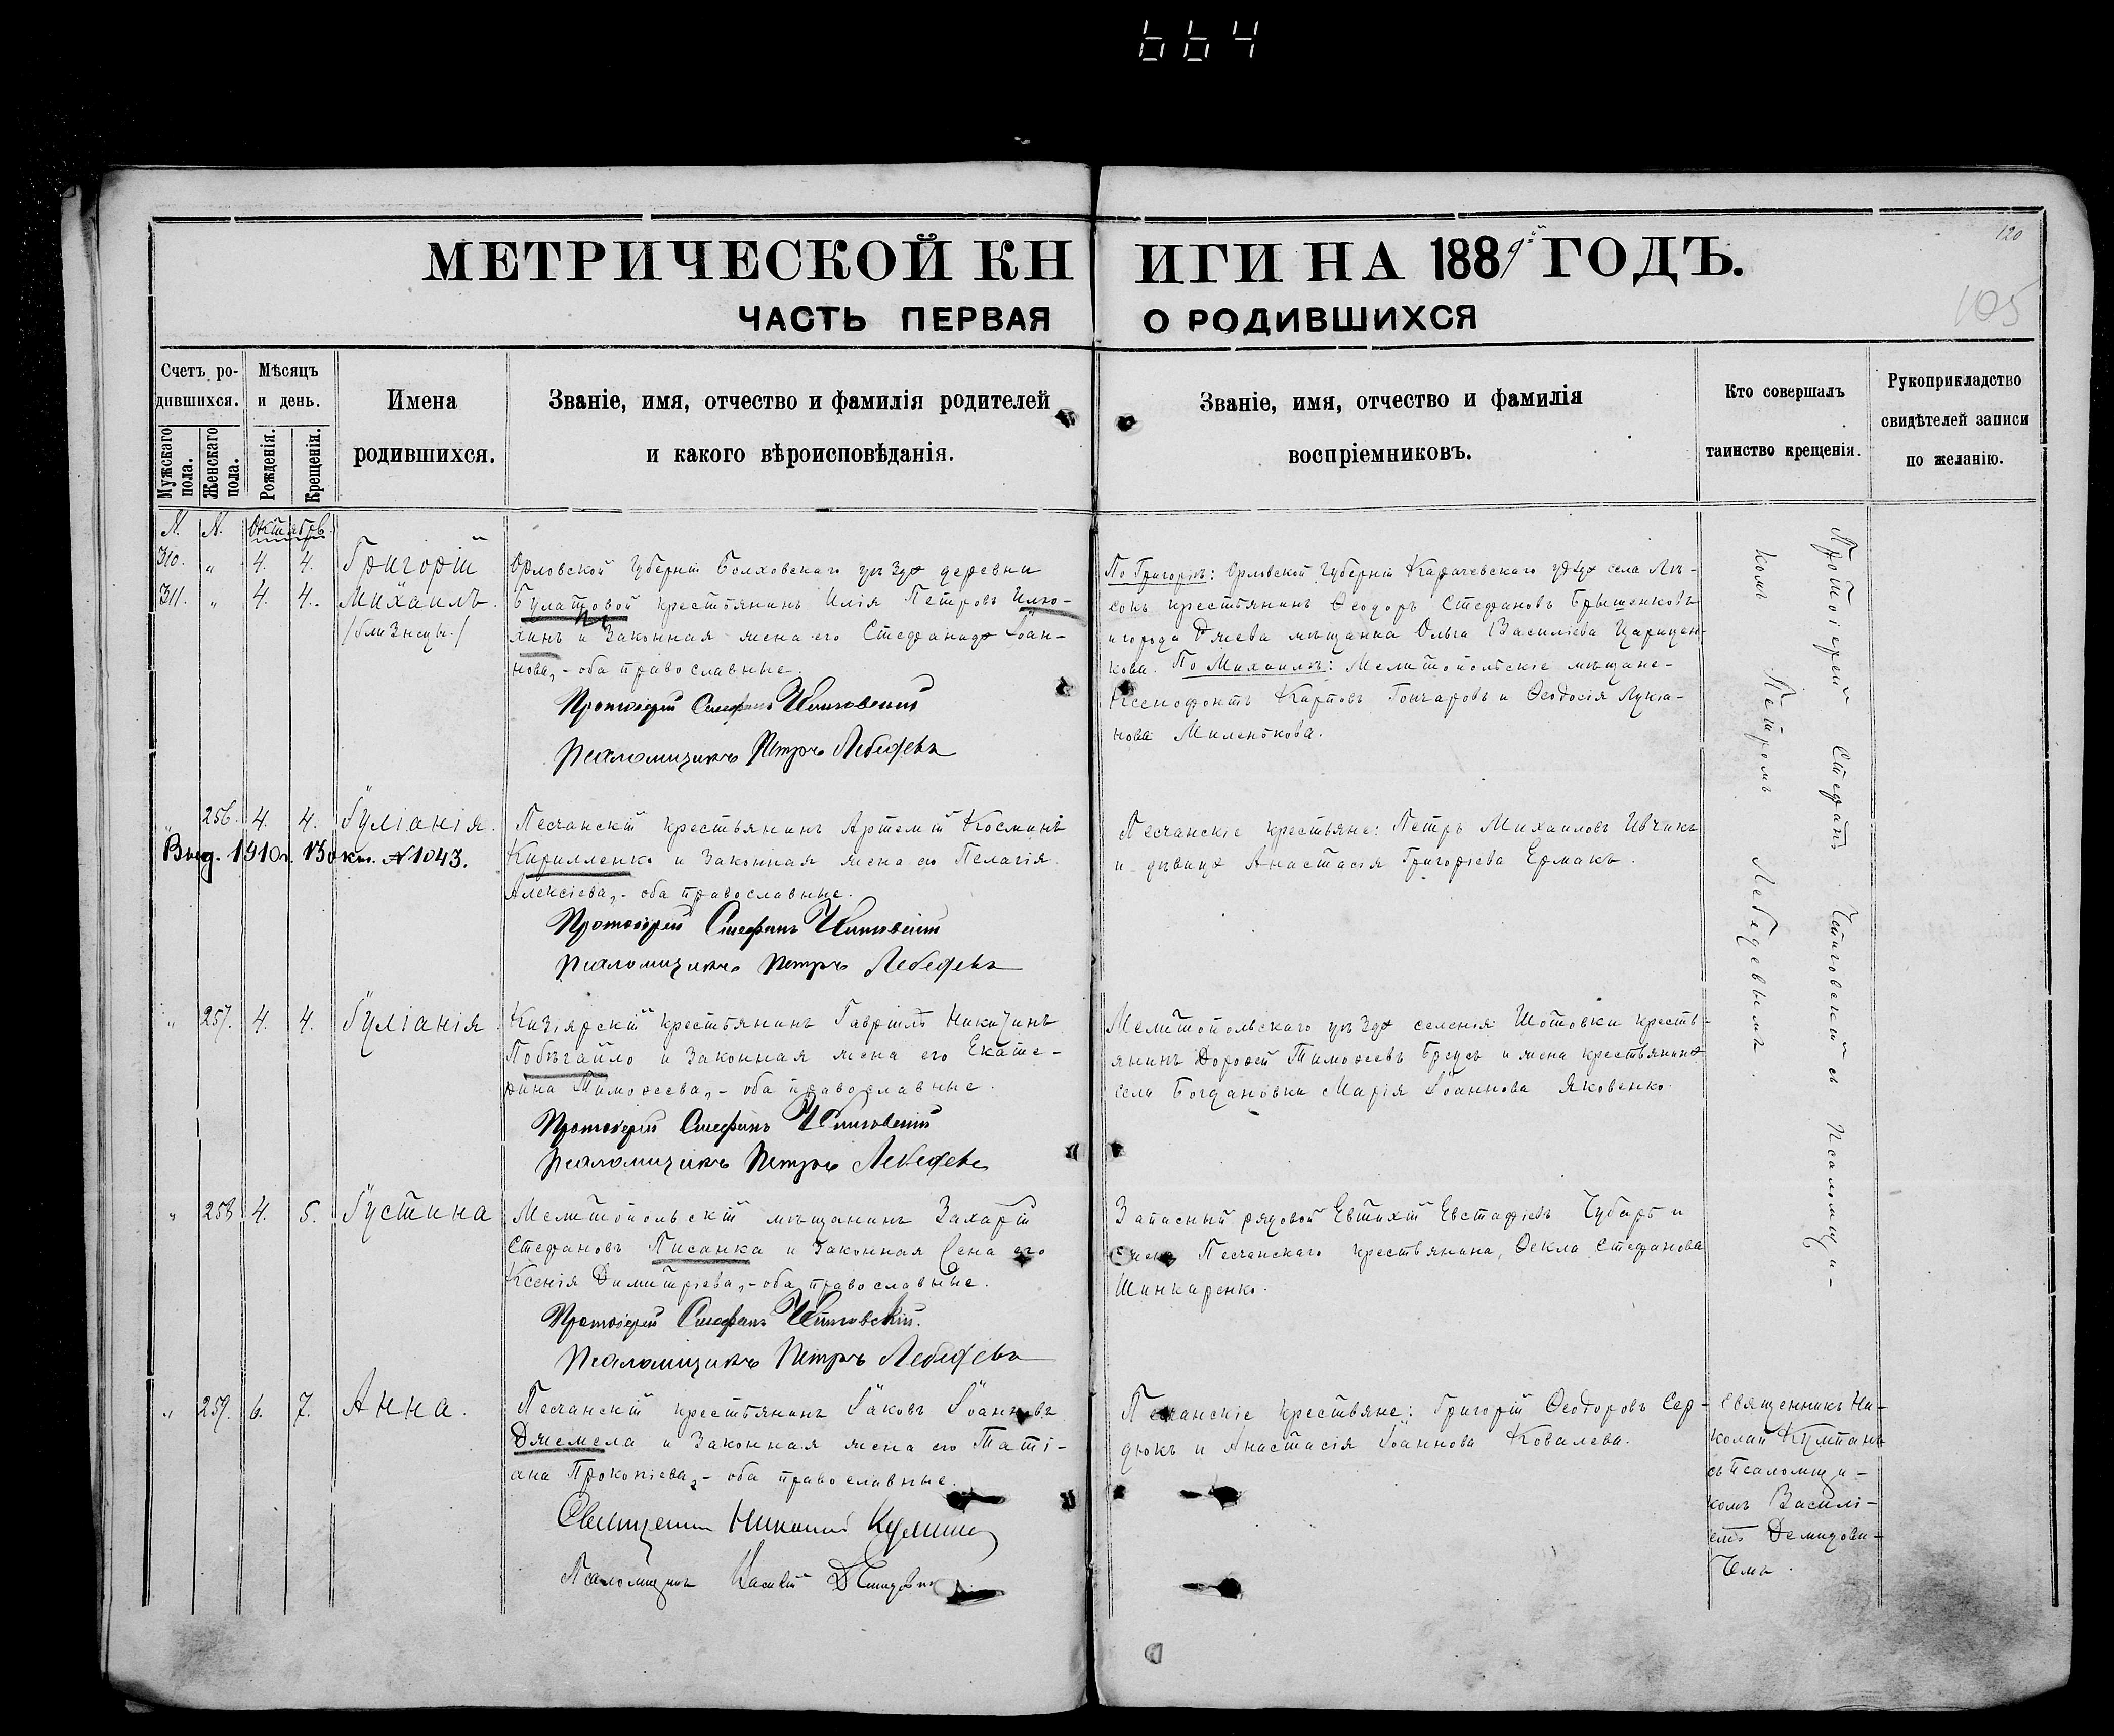 664
120
105
МЕТРИЧЕСКОЙ КНИГИ НА 1889й ГОДЪ.
ЧАСТЬ ПЕРВАЯ О РОДИВШИХСЯ
Счетъ родившихся.
Мужскаго пола.
Женскаго пола.
Мѣсяцъ и день.
Рожденія.
Крещенія.
Имена
родившихся.
Званіе, имя, отчество и фамилія родителей
и какого вѣроисповѣданія.
Званіе, имя, отчество и фамилія
воспріемниковъ.
Кто совершалъ
таинство крещенія.
Рукоприкладство
свидѣтелей записи
по желанію.
N. N. Октябрь.
310. „ 4. 4. Григорій
311. „ 4. 4. Михаилъ.
/близнецы./
Орловской Губерніи Болховскаго уѣзда деревни
Булатовой крестьянинъ Илія Петровъ Илю-
хинъ и законная жена его Стефанида Іоан-
нова, - оба православные.
Протоіерей Стефанъ
Псаломщикъ Петръ Лебедевъ
По Григоріѣ: Орловской Губерніи Карачевскаго уѣзда села
крестьянинъ Ѳеодоръ Стефановъ Брышенковъ
и города мѣщанка Ольга Василіева Царицен-
кова. По Михаилѣ: Мелитопольскіе мѣщане-
Ксенофонтъ Карповъ Гончаровъ и Ѳеодосія Лукіа-
нова Миленькова.
Протоіерей Стефанъ Читовскій съ Псаломщи-
комъ Петромъ Лебедевымъ.
„ 256. 4. 4. Іуліанія.
Выд. 1910г. 13 окт. N 1043.
Песчанскій крестьянинъ Артемій Косминъ
Кирилленко и законная жена его Пелагія
Алексіева, - оба православные.
Протоіерей Стефанъ
Псаломщикъ Петръ Лебедевъ
Песчанскіе крестьяне: Петръ Михаиловъ Ивчикъ
и дѣвица Анастасія Григоріева Ермакъ.
„ 257. 4. 4. Іуліанія.
Кизіярскій крестьянинъ Гавріилъ Никитинъ
Побѣгайло и законная жена его Екате-
рина Тимоѳеева, - оба православные.
Протоіерей Стефанъ
Псаломщикъ Петръ Лебедевъ
Мелитопольскаго уѣзда селенія Шотовки кресть-
янинъ Дороѳей Тимоѳеевъ Бреусъ и жена крестьянина
села Богдановки Марія Іоаннова Яковенко.
„ 258 4. 5. Іустина
Мелитопольскій мѣщанинъ Захарій
Стефановъ Писанка и законная жена его
Ксенія Димитріева, - оба православные.
Протоіерей Стефанъ
Псаломщикъ Петръ Лебедевъ
Запасный рядовой Евтихій Евстафіевъ Чубаръ и
жена Песчанскаго крестьянина, Ѳекла Стефанова
Шинкаренко.
„ 259. 6. 7. Анна.
Песчанскій крестьянинъ Іаковъ Іоанновъ
Джемела и законная жена его Таті-
ана Прокопіева, - оба православные.
Священникъ Николай
Псаломщикъ Василій
Песчанскіе крестьяне: Григорій Ѳеодоровъ Сер-
дюкъ и Анастасія Іоаннова Ковалева.
Священникъ Ни-
колай
съ Псаломщи-
комъ Василі-
емъ Демидови-
чемъ.